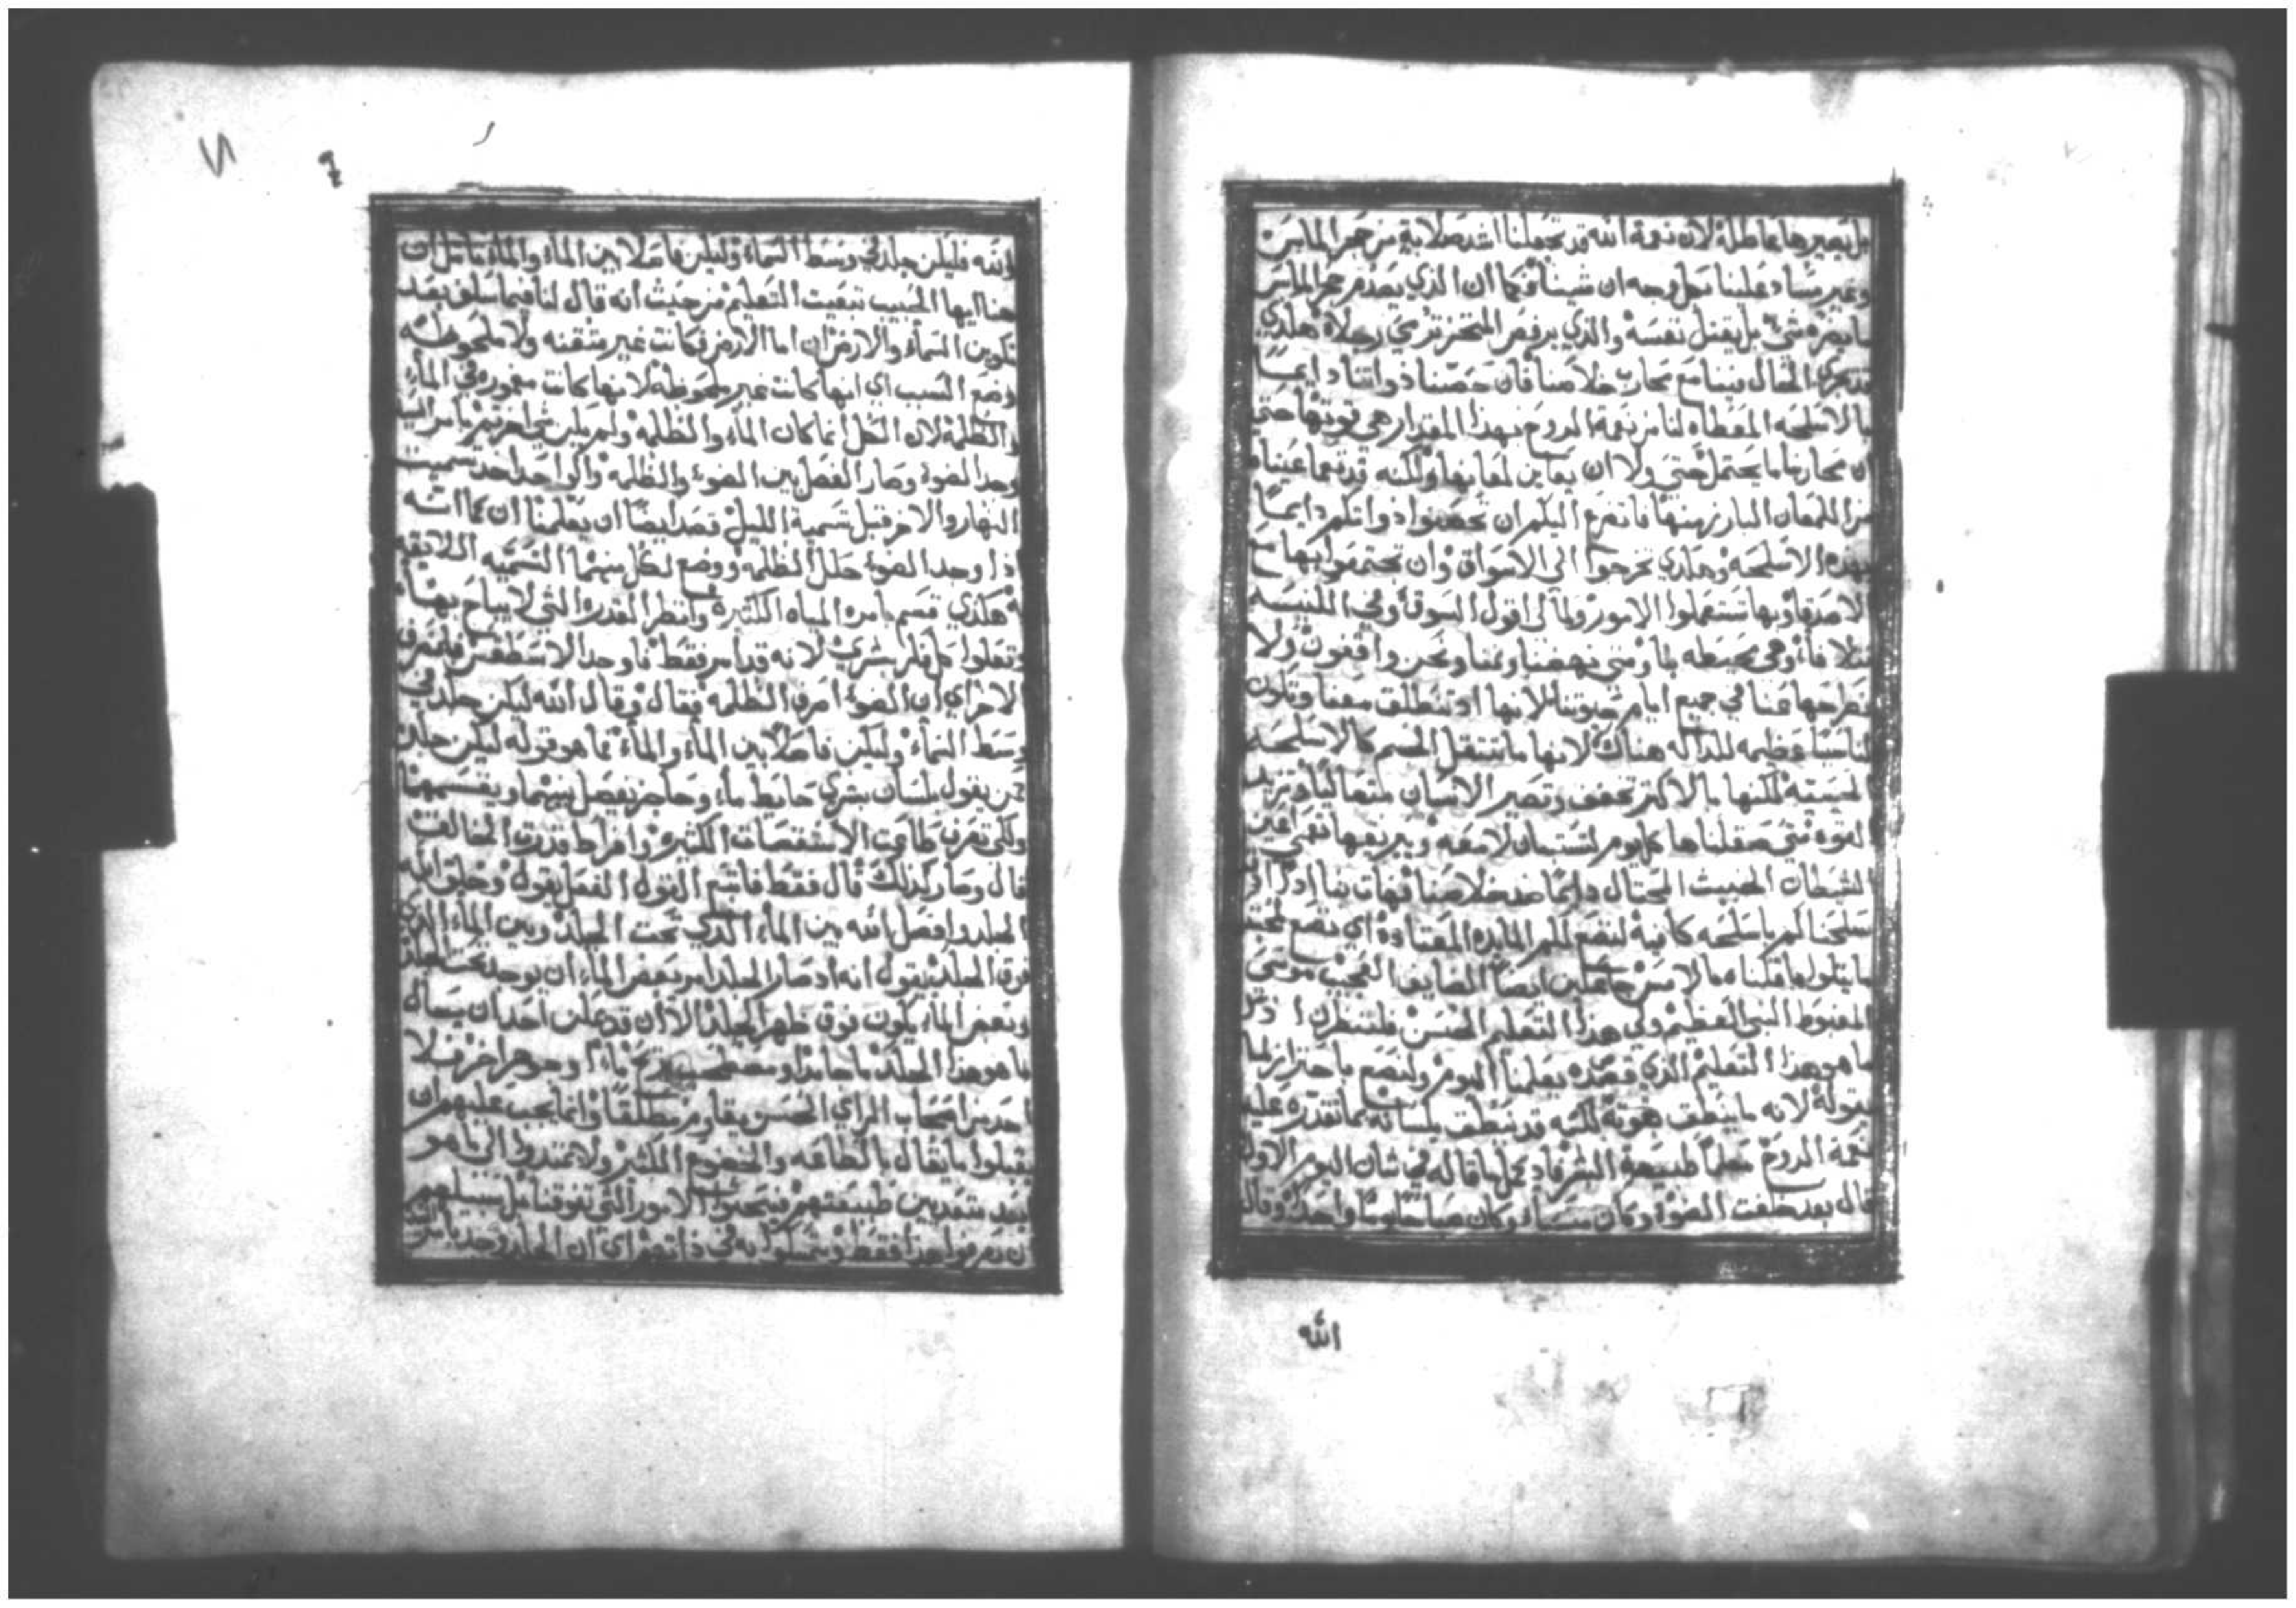 بل يصيرها عاطلة لان نعمة الله قد تجعلنا اشد صلابة من حجر الماس
وغير متسا د علينا بكل وجه ان شينا فكما ان الذي يصدم حجر الماس
ما يضره شي بل يقتل نفسه والذي يرفص المنخز تدمي رجلاه هكذي
تجري الحال بيننا مع محارب خلاصنا فان حصنا ذواتنا دايما
بالاسلحه المعطاه لنا من نعمة الروح بهذا المقدار هي قوتها حتي
ان محاربنا ما يحتمل حتي ولا ان يعاين لمعانها ولكنه قد تعما عيناه
من اللمعان البارز منها فاتضرع اليكم ان تحصنوا ذواتكم دايما
بهذه الاسلحه وهكذي تخرجوا الي الاسواق وان تجتمعوا بها مع
الاصدقا وبها تستعملوا الامور ولما لي اقول السوق وفي الكنيسه
وهي محيطه بنا ومتي نهضنا ونمنا ونحن واقفون ولا
نطرحها عنا في جميع ايام حيوتنا لانها اذ تنطلق معنا وتكون
لنا سببا عظيمه للداله هناك لانها ما تثقل الجسم كالاسلحه
الحسيه لكنها بالاكثر تخفف وتصير الانسان متعاليا وتزيد
القوه متي صقلناها كل يوم لتستبان لامعه وببريقها تعمي اعين
الشيطان الخبيث المحتال دايما ضد خلاصنا فهات بنا اذا اذ
سلحناكم باسلحه كافية لنضع لكم المايده المعتادة اي نضع لمحبتكم
ما يتلو ما قلناه بالامس جاعلين ايضا المضايف العجيب موسي
المغبوط النبي العظيم وفي هذا التعليم الحسن فلننظرن اذ
ما هو هذا التعليم الذي قصده يعلمنا اليوم ولنضع باحتراز لما
يقوله لانه ما ينطق بقوته لكنه قد نطق بلسانه بما تقدره عليه
نعمة الروح معلما طبيعة البشر فاذ كمل ما قاله في شان اليوم الاول
قال بعد خلقت الضوء وكان مساء وكان صباحا يوما واحدا وقال
الله
الله فليكن جلد في وسط السماء وليكن فاصلا بين الماء والماء تامل
هنا ايها الحبيب تبعيت التعليم من حيث انه قال لنا فيما سلف بعد
تكوين السماء والارض ان اما الارض فكانت غير متقنه ولا ملحوظه
وضع السبب اي انها كانت غير ملحوظه لانها كانت مغموره في الماء
والظلمة لان الكل انما كان الماء والظلمه ولم يكن شي اخر ثم بامر الرب
وجد الضوء وصار الفصل بين الضوء والظلمه والواحد اخذ تسميت
النهار والاخر قبل تسمية الليل قصد ايضا ان يعلمنا ان كما انه
اذ اوجد الضوء حلل الظلمه ووضع لكل منهما التسميه اللايقه
هكذي قسم بامره المياه الكثيره وانظر القدره التي لا يباح بها
وتعلوا كل فكر بشري لانه قد امر فقط فاوجد الاسطقس
الاخر اي ان الضوء اصرف الظلمه فقال وقال الله ليكن جلد في
وسط السماء وليكن فاصلا بين الماء والماء ما هو قوله ليكن جلد
من يقول بلسان بشري حايط ماء وحاجز يفصل بينهما ويقسمها
ولكي تعرف طاعت الاستقصات الكثيره وافراط قدرت الخالق
قال وصار كذلك قال فقط فاتبع القول الفعل يقول وخلق الله
الجلد وافصل الله بين الماء الذي تحت الجلد وبين الماء الذي
فوق الجلد يقول انه اذ صار الجلد امر بعض الماء ان يوجد تحت الجلد
وبعض الماء يكون فوق ظهر الجلد الا ان قد يمكن احد ان يسال
ما هو هذا الجلد ما جامد او اما وجوهر اخر فلا
احد من اصحاب الراي الحسن يقاوم مطلقا وانما يجب عليهم ان
يقبلوا ما يقال بالطاعه والخضوع الكثير ولا يمتدوا الي ما هو
بعد متعديين طبيعتهم فيبحثوا الامور التي تفوقنا بل سبيلهم
ان يعرفوا هذا فقط ويتمسكوا به في ذاتهم اي ان الجلد وجد بامر